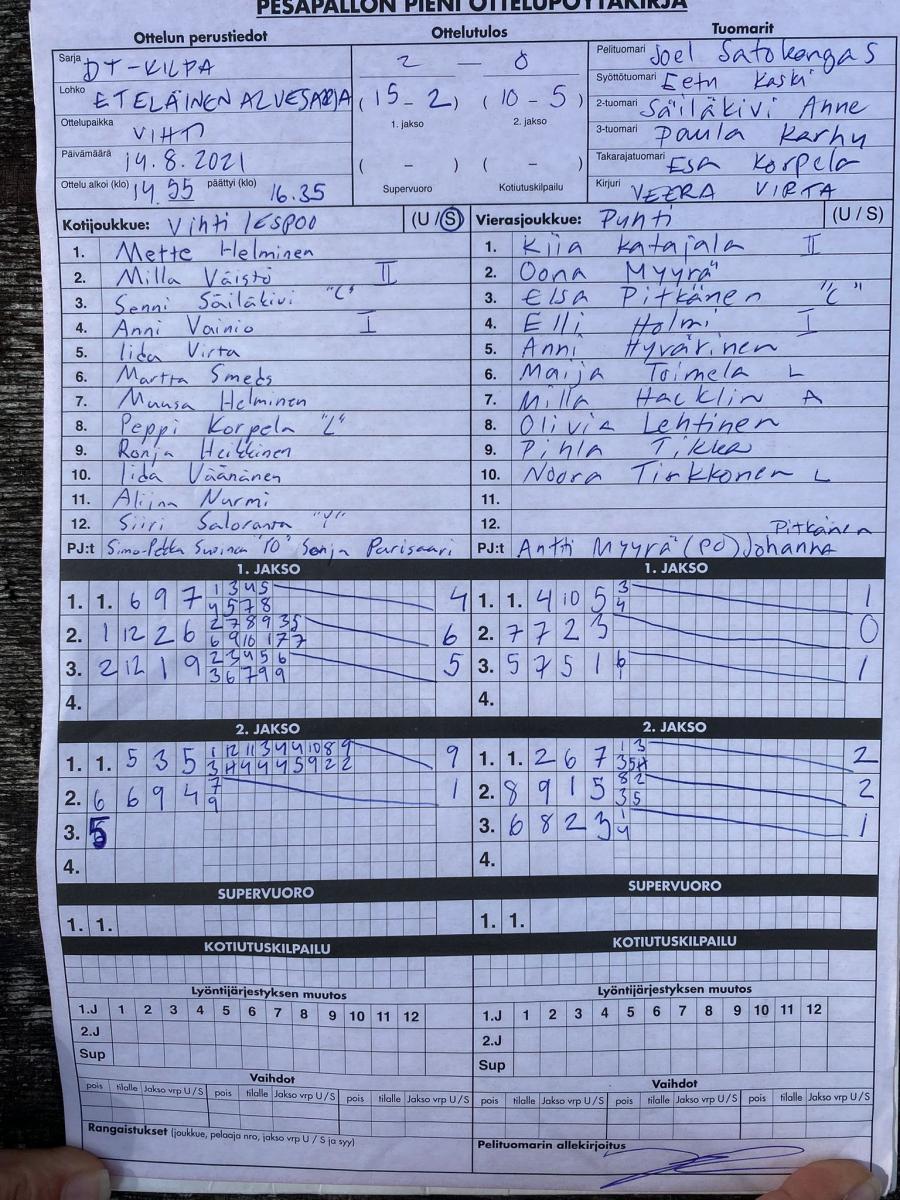 PESÄPALLON PIENI OTTELUPÖYTÄKIRJA
Ottelun perustiedot
Sarja DT-KILPA
Lohko ETELÄINEN ALUESARJA
Ottelupaikka VIHTI
Päivämäärä 14.8.2021
Ottelu alkoi (klo) 14.55 päättyi (klo) 16.35
Ottelutulos
2 — 0
(15 - 2) (10 - 5)
1. jakso 2. jakso
( - ) ( - )
Supervuoro Kotiutuskilpailu
Tuomarit
Pelituomari Joel Satokangas
Syöttötuomari Eetu Kaski
2-tuomari Säiläkivi Anne
3-tuomari Paula Karhu
Takarajatuomari Esa Korpela
Kirjuri VEERA VIRTA
Kotijoukkue: Vihti / ESPOO (U / S)
1. Mette Helminen
2. Milla Väistö II
3. Senni Säiläkivi "C"
4. Anni Vainio I
5. Iida Virta
6. Martta Smeds
7. Muusa Helminen
8. Peppi Korpela "L"
9. Ronja Heikkinen
10. Iida Väänänen
11. Aliina Nurmi
12. Siiri Saloranta
PJ:t Simo-Pekka "TO" Sonja
Vierasjoukkue: Puhti (U / S)
1. Kiia Katajala II
2. Oona Myyrä
3. Elsa Pitkänen "C"
4. Elli Holmi I
5. Anni Hyvärinen
6. Maija Toimela L
7. Milla Hacklin A
8. Olivia Lehtinen
9. Pihla Tikka
10. Noora Tirkkonen L
11.
12.
PJ:t Antti Myyrä (PO) Johanna Pitkänen
1. JAKSO
1. 1. 6 9 7 1 3 4 5 4
4 5 7 8
2. 1 12 2 6 2 7 8 9 3 5 6
6 9 10 1 7 7
3. 2 12 1 9 2 3 4 5 6 5
3 6 7 9 9
4.
1. JAKSO
1. 1. 4 10 5 3 1
4
2. 7 7 2 3 0
3. 5 7 5 1 6 1
1
4.
2. JAKSO
1. 1. 5 3 5 1 12 11 3 4 4 10 8 9 9
3 4 4 4 5 9 2 2
2. 6 6 9 4 7 1
9
3. 5
4.
2. JAKSO
1. 1. 2 6 7 1 3 2
3 5
2. 8 9 1 5 8 2 2
3 5
3. 6 8 2 3 1 1
4
4.
SUPERVUORO
1. 1.
SUPERVUORO
1. 1.
KOTIUTUSKILPAILU
KOTIUTUSKILPAILU
Lyöntijärjestyksen muutos
1.J 1 2 3 4 5 6 7 8 9 10 11 12
2.J
Sup
Lyöntijärjestyksen muutos
1.J 1 2 3 4 5 6 7 8 9 10 11 12
2.J
Sup
Vaihdot
pois tilalle Jakso vrp U / S pois tilalle Jakso vrp U / S pois tilalle Jakso vrp U / S
Vaihdot
pois tilalle Jakso vrp U / S pois tilalle Jakso vrp U / S pois tilalle Jakso vrp U / S
Rangaistukset (joukkue, pelaaja nro, jakso vrp U / S ja syy)
Pelituomarin allekirjoitus